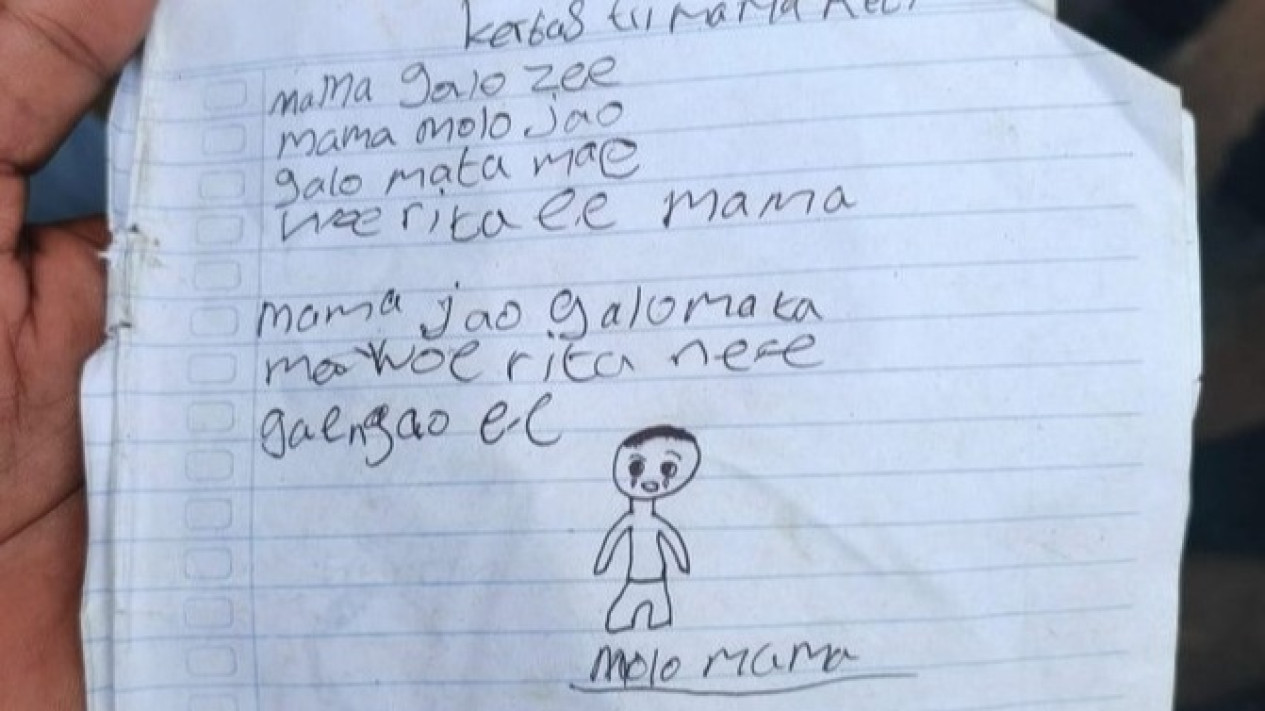 kertas tii mama reti
mama galo zee
mama molo jao
galo mata mae
woe rita ee mama
mama jao galo mata
mae woe rita ne'e
gae ngao ee
molo mama